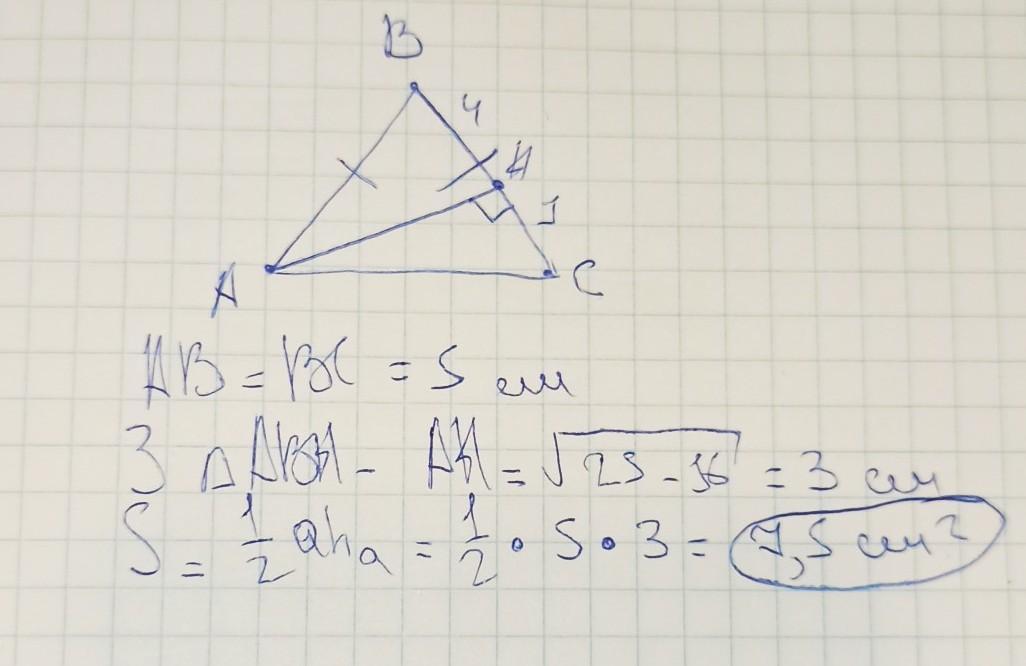 B
4
H
1
A
C
AB = BC = 5 см
З △ ABH - AH = √25 - 16 = 3 см
S = 1/2 ah_a = 1/2 • 5 • 3 = 7,5 см²